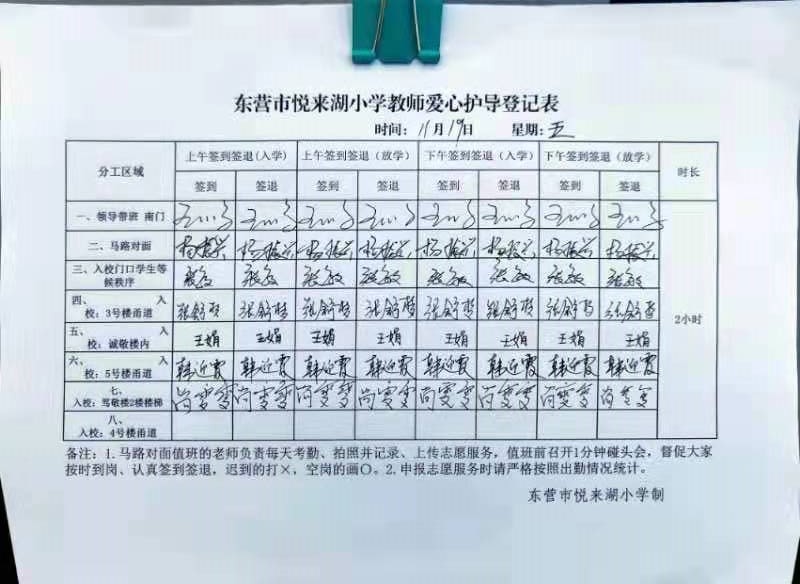 东营市悦来湖小学教师爱心护导登记表
时间：11月19日 星期：五
分工区域 上午签到签退(入学) 上午签到签退（放学） 下午签到签退（入学） 下午签到签退（放学） 时长
签到 签退 签到 签退 签到 签退 签到 签退
一、领导带班 南门
二、马路对面 杨振兴 杨振兴 杨振兴 杨振兴 杨振兴 杨振兴 杨振兴 杨振兴
三、入校门口学生等
候秩序 张敏 张敏 张敏 张敏 张敏 张敏 张敏 张敏
四、 入
校：3号楼甬道 张舒 张舒 张舒 张舒 张舒 张舒 张舒 张舒
2小时
五、 入
校：诚敬楼内 王娟 王娟 王娟 王娟 王娟 王娟 王娟 王娟
六、 入
校：5号楼甬道 韩近霞 韩近霞 韩近霞 韩近霞 韩近霞 韩近霞 韩近霞 韩近霞
七、
入校：笃敬楼2楼楼梯 尚雯雯 尚雯雯 尚雯雯 尚雯雯 尚雯雯 尚雯雯 尚雯雯 尚雯雯
八、
入校：4号楼甬道
备注：1.马路对面值班的老师负责每天考勤、拍照并记录、上传志愿服务，值班前召开1分钟碰头会，督促大家
按时到岗、认真签到签退，迟到的打×，空岗的画〇。2.申报志愿服务时请严格按照出勤情况统计。
东营市悦来湖小学制